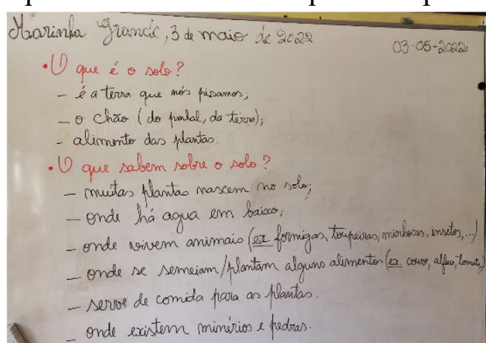 Marinha Grande, 3 de maio de 2022
03-05-2022
• O que é o solo?
– é a terra que nós pisamos;
– o chão (do pinhal, da terra);
– alimento das plantas.
• O que sabem sobre o solo?
– muitas plantas nascem no solo;
– onde há agua em baixo;
– onde vivem animais (ex formigas, toupeiras, minhocas, insetos, ...)
– onde se semeiam/plantam alguns alimentos (ex. couve, alface, tomate,)
– serve de comida para as plantas.
– onde existem minérios e pedras.